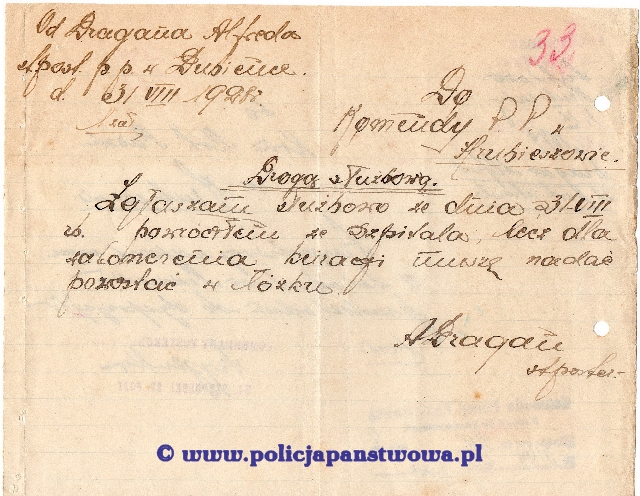 Od Dragana Alfreda
st. post. p. p. w Dubience.
d. 31/VIII 192
33
Do
Komendy P. P. w
Hrubieszowie.
Drogą służbową.
Zgłaszam służbowo że dnia 31/VIII
rb. powróciłem ze szpitala, lecz dla
zakończenia kuracji muszę nadal
pozostać w łóżku.
A Dragan
st. poster.
© www.policjapanstwowa.pl